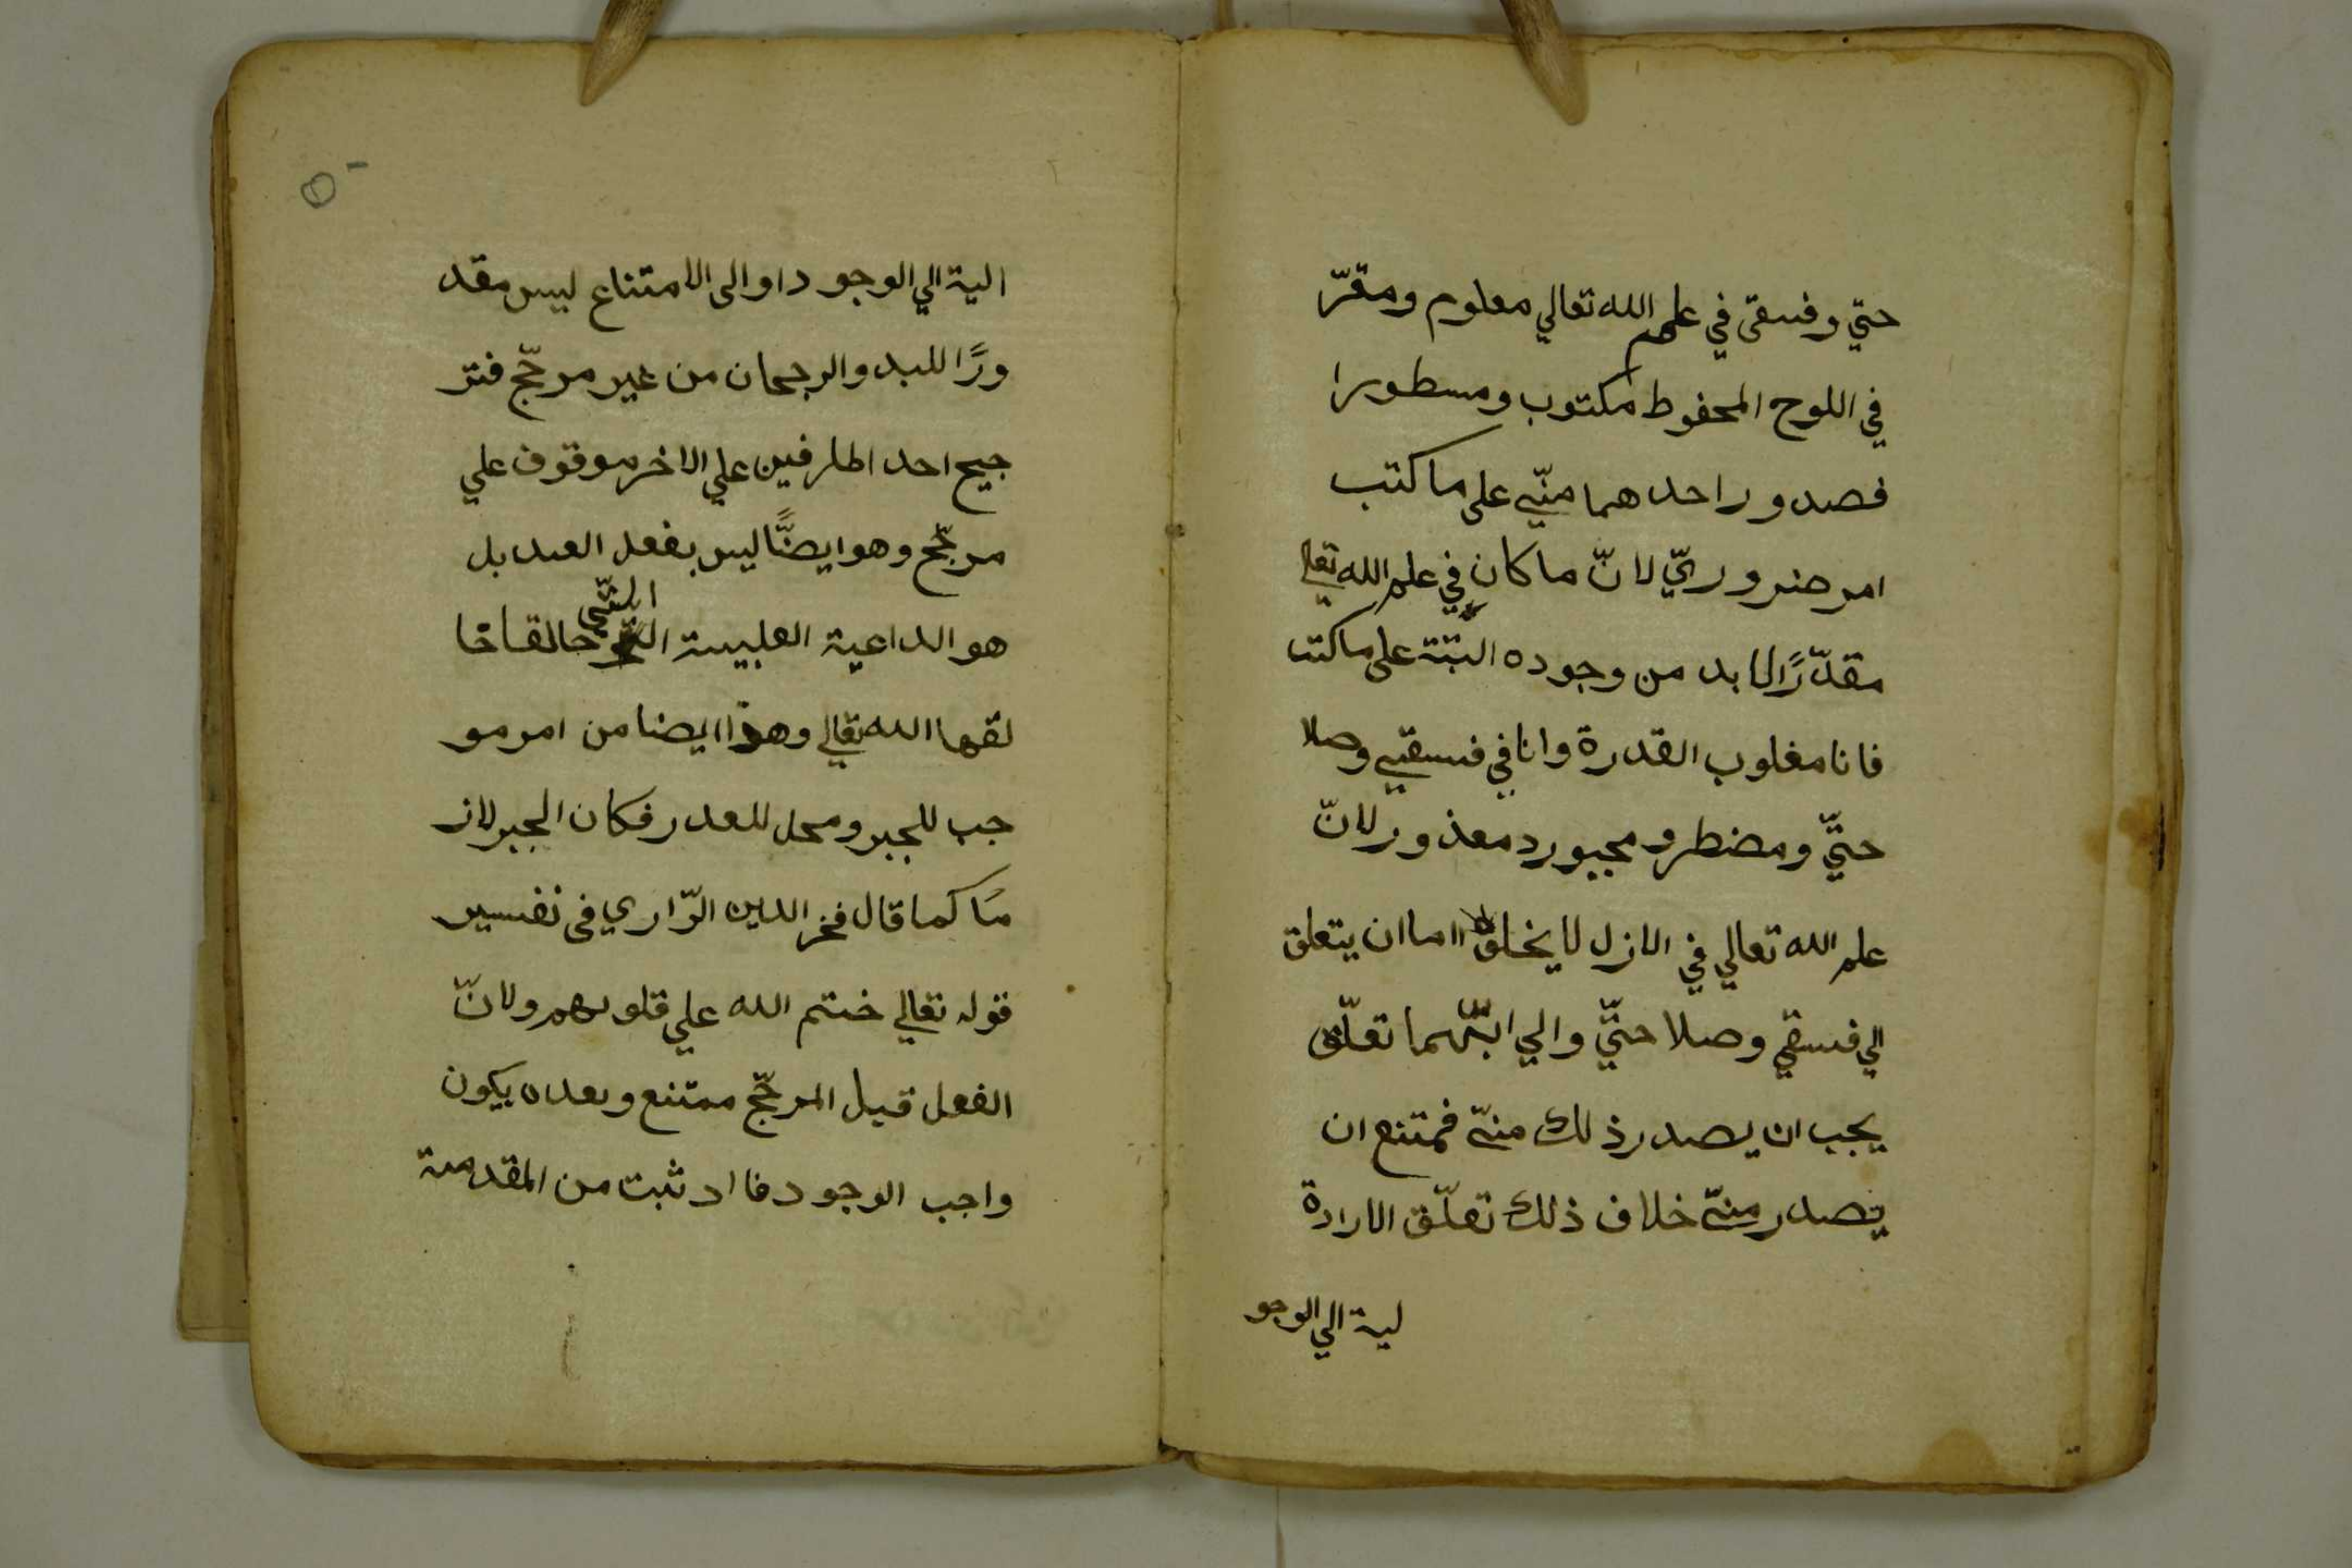 حتي وفسقى في علم الله تعالي معلوم ومقرّ
في اللوح المحفوط مكتوب ومسطورا
فصدور احدهما منّي على ما كتب
امر ضروريّ لانّ ما كان في علم الله تعالى
مقدّرًا لا بد من وجوده البتّة على ما كتب
فانا مغلوب القدرة وانا في فسقيي وصلا
حتّي ومضطر و مجبور د معذور لانّ
علم الله تعالي في الازل لا يخلق اما ان يتعلق
الي فسقي وصلاحتّي والي ايّهما تعلّق
يجب ان يصدر ذلك منّي فمتنع ان
يصدر منّي خلاف ذلك تعلّق الارادة
لية الي الوجو
الية الي الوجود او الى الامتناع ليس مقد
ورًا للبد والرجحان من غير مرجّح فتر
جيح احد الطرفين علي الاخر موقوف علي
مرجّح وهو ايضًّا ليس بفعل العبد بل
هو الداعية القلبيية التّي حالقا خا
لقها الله تعالي وهذا ايضا من امر مو
جب للجبر ومحل للعدر فكان الجبر لاز
مًا كما قال فخر الدين الرّاري فى تفسير
قوله تعالي ختم الله علي قلوبهم ولانّ
الفعل قبل المرجّح ممتنع وبعده يكون
واجب الوجود فا اد ثبت من المقدمة